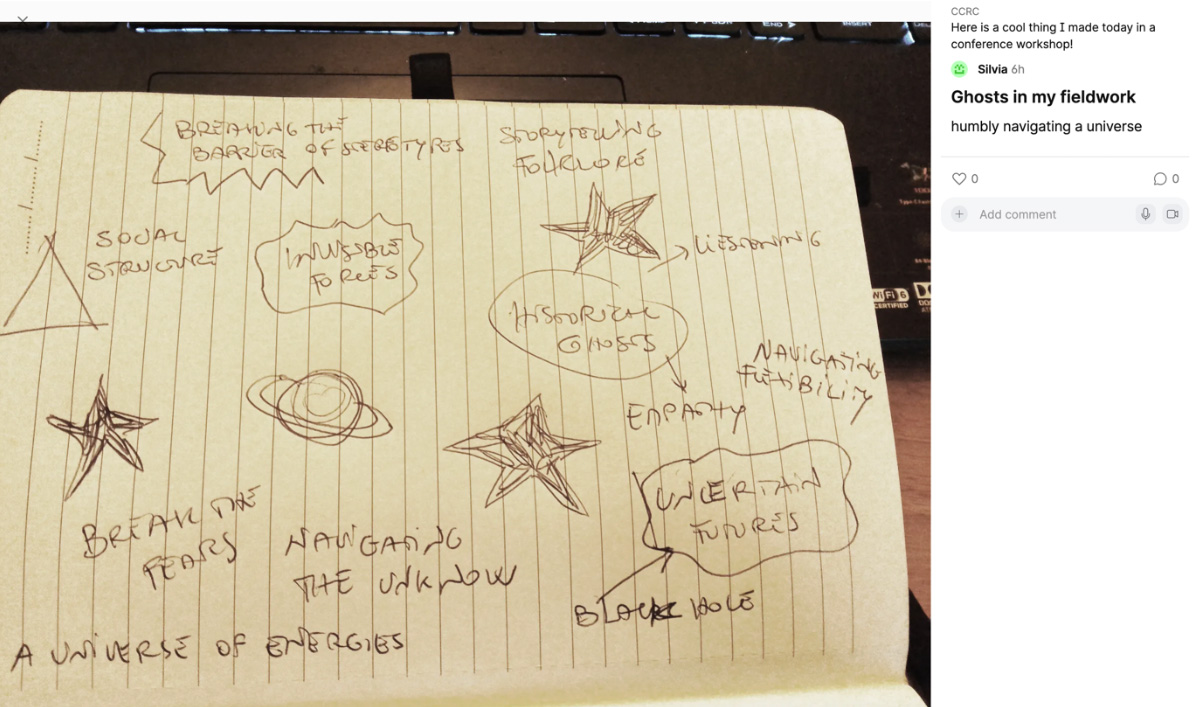 BREAKING THE
BARRIER OF STEREOTYPES
STORYTELLING
FOLKLORE
SOCIAL
STRUCTURE
INVISIBLE
FORCES
LIESTONING
HISTORICAL
GHOSTS
NAVIGATING
EMPATHY
BREAK THE
FEARS
NAVIGATING
THE UNKNOW
UNCERTAIN
FUTURES
BLACK HOLE
A UNIVERSE OF ENERGIES
END
INSERT
WiFi 6
CERTIFIED
CCRC
Here is a cool thing I made today in a
conference workshop!
Silvia 6h
Ghosts in my fieldwork
humbly navigating a universe
0 0
Add comment